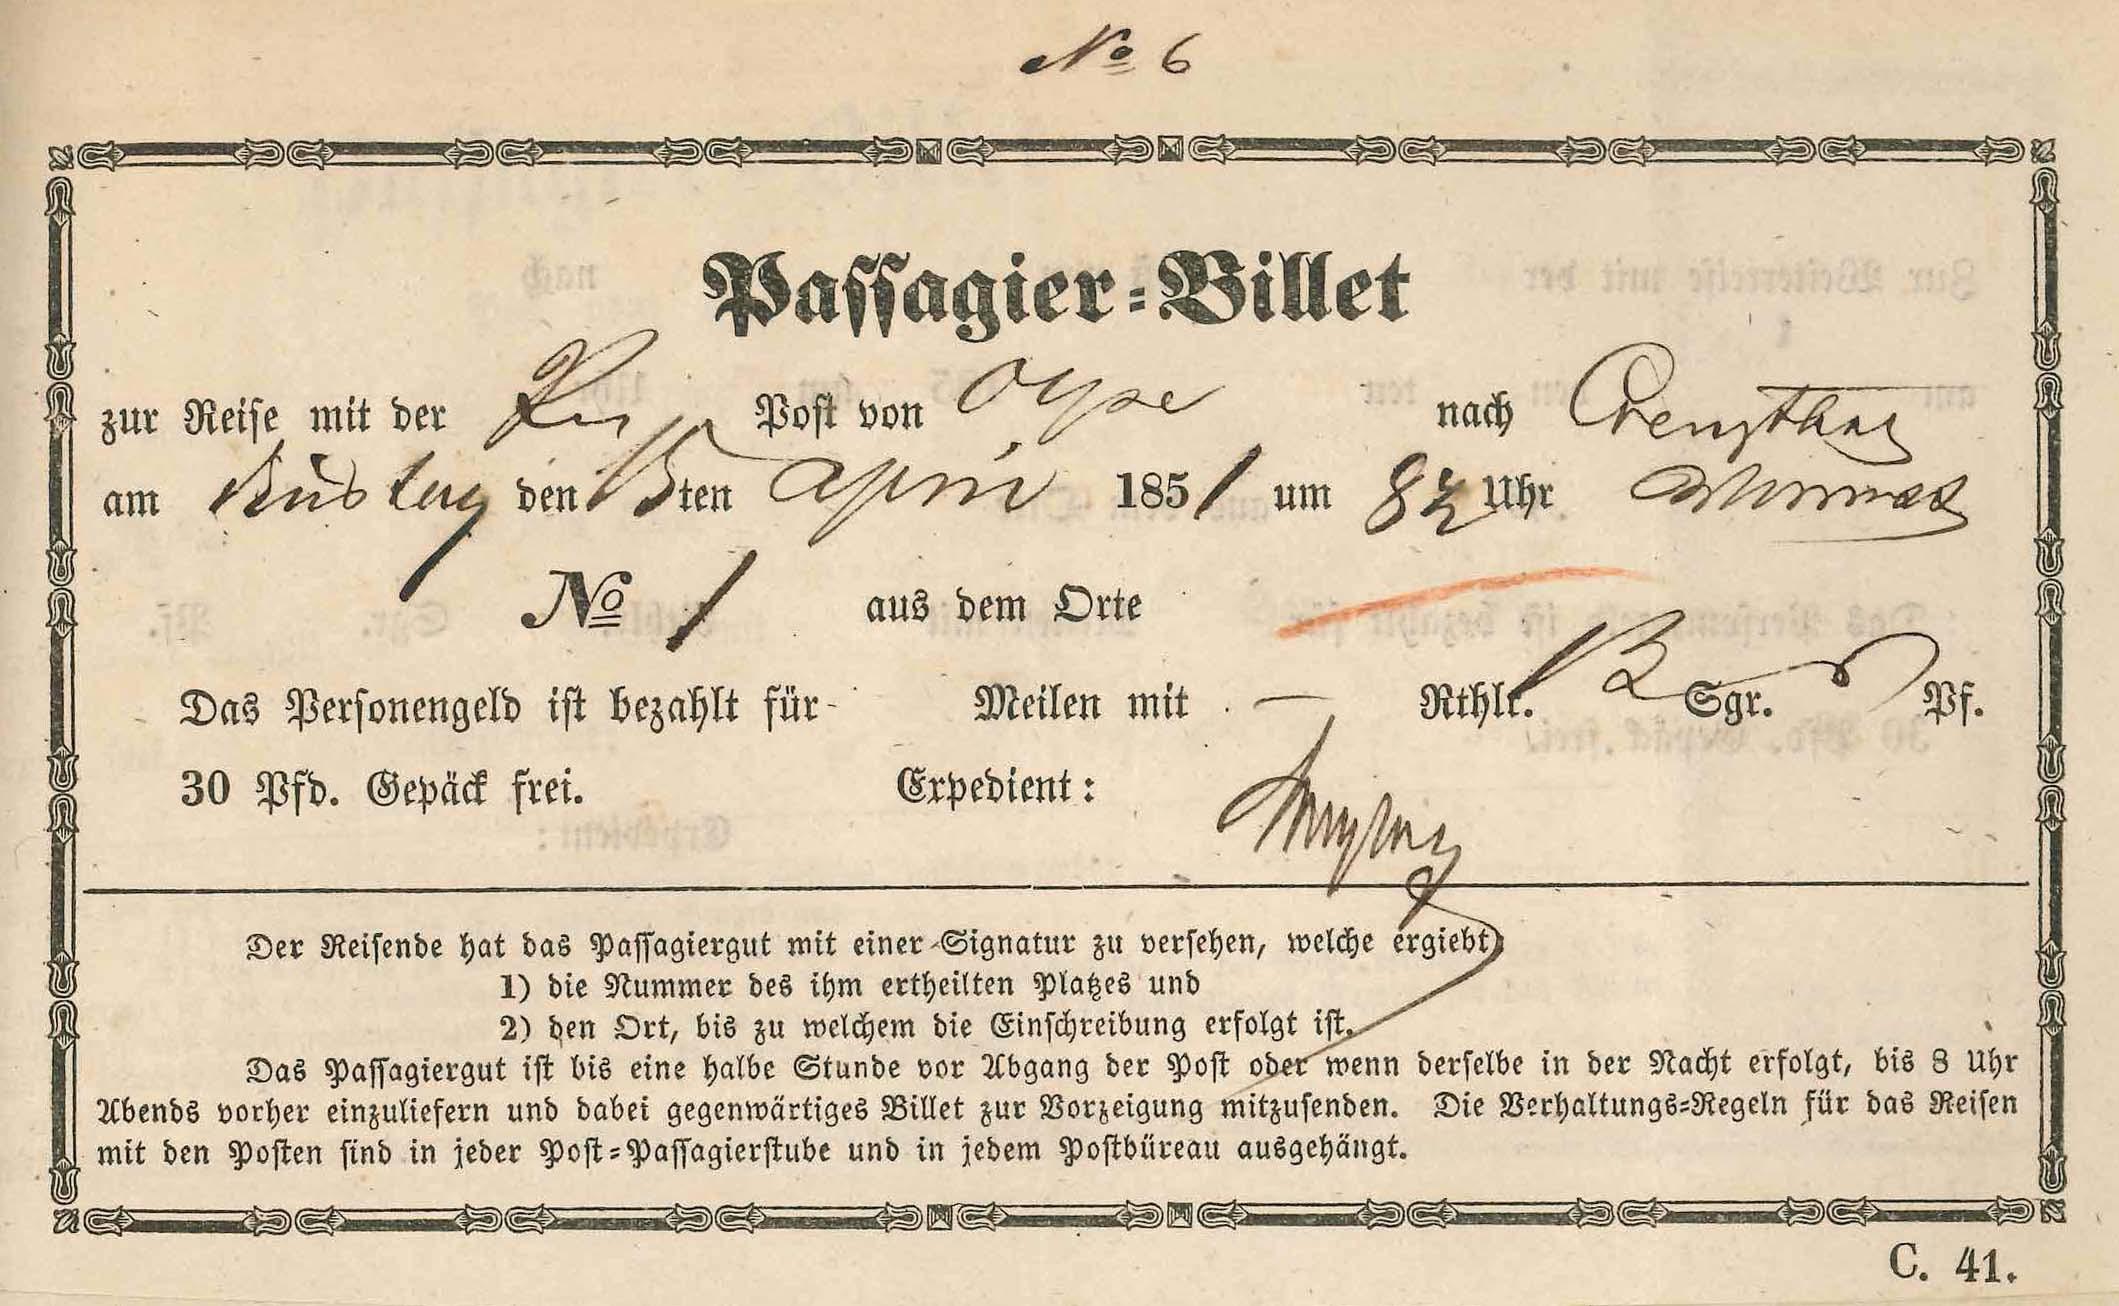 No 6
Passagier-Billet
zur Reise mit der Post von Olpe nach
am Dienstag den 15ten April 1851 um 8½ Uhr
No 1 aus dem Orte
Das Personengeld ist bezahlt für Meilen mit — Rthlr. Sgr. Pf.
30 Pfd. Gepäck frei. Expedient:
Der Reisende hat das Passagiergut mit einer Signatur zu versehen, welche ergiebt
1) die Nummer des ihm ertheilten Platzes und
2) den Ort, bis zu welchem die Einschreibung erfolgt ist.
Das Passagiergut ist bis eine halbe Stunde vor Abgang der Post oder wenn derselbe in der Nacht erfolgt, bis 8 Uhr
Abends vorher einzuliefern und dabei gegenwärtiges Billet zur Vorzeigung mitzusenden. Die Verhaltungs-Regeln für das Reisen
mit den Posten sind in jeder Post-Passagierstube und in jedem Postbüreau ausgehängt.
C. 41.